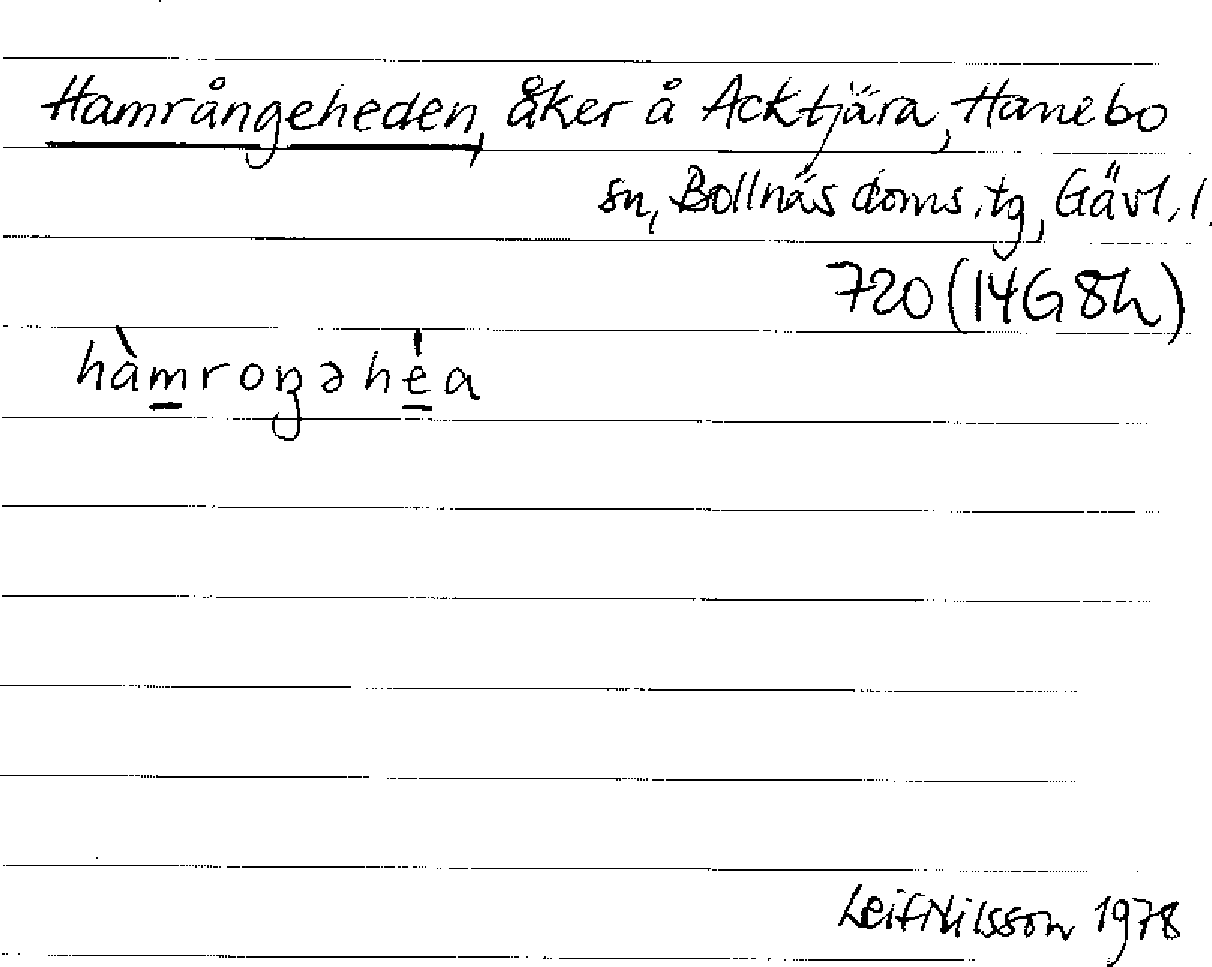 Hamrångeheden, åker å Acktjära, Hanebo
sn, Bollnäs doms. tg, Gävl. l.
720 (14G 8h)
hàmroŋəhéa
Leif Nilsson 1978